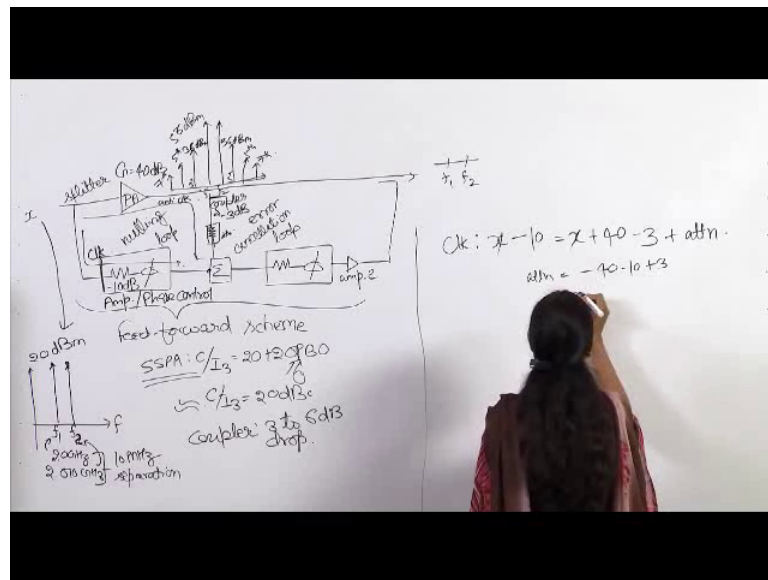 splitter
G=40dB
PA
55dBm
35dBm
35dBm
coupler
-3dB
f₁ f₂
x
nulling
loop
error
cancellation
loop
attn
clk
aniclk
-10dB
Σ
amp.2
Amp./Phase control
Feed-forward scheme
20dBm
SSPA: C/I₃ = 20+2OPBO
C/I₃ = 20dBc
coupler: 3 to 6dB
drop.
f₁ f₂ f
10MHz
separation
Clk: x-10 = x+40-3+attn.
attn = -40-10+3